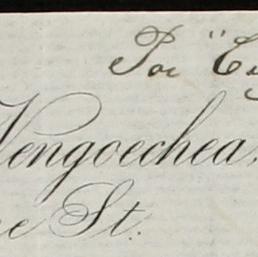 Por "Ci
Vengoechea,
e St.